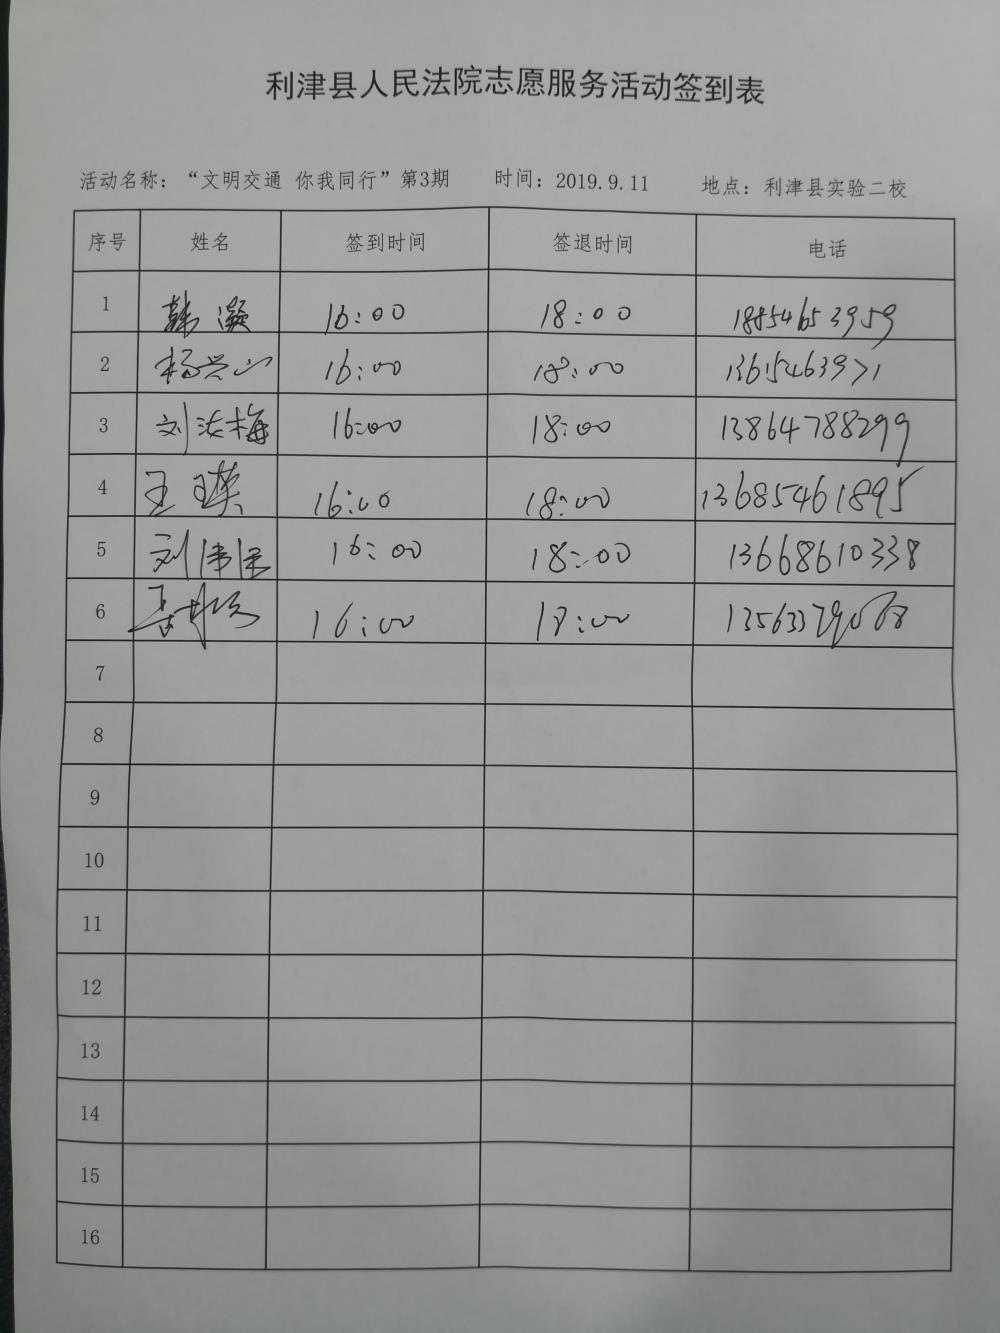 利津县人民法院志愿服务活动签到表
活动名称：“文明交通 你我同行”第3期 时间：2019.9.11 地点：利津县实验二校
序号 姓名 签到时间 签退时间 电话
1 韩凝 16:00 18:00 18854653959
2 杨兴山 16:00 18:00 1365463971
3 刘洪梅 16:00 18:00 13864788299
4 王瑛 16:00 18:00 13685461895
5 刘 16:00 18:00 13668610338
6 16:00 18:00
7
8
9
10
11
12
13
14
15
16